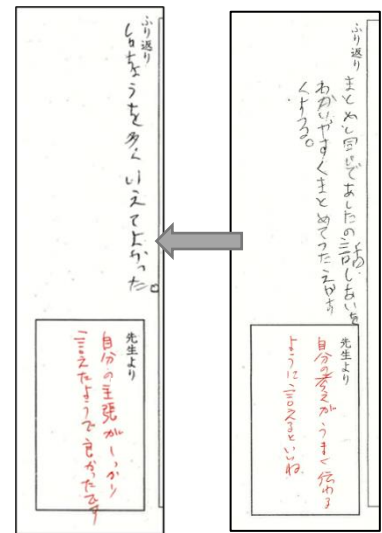 ふり返り
まとめと同じであしたの話しあいを
わかりやすくまとめて
先生より
自分の考えがうまく伝わる
ように言えるといいね。
ふり返り
多くいえてよかった。
先生より
自分の主張がしっかり
言えたようで良かったです